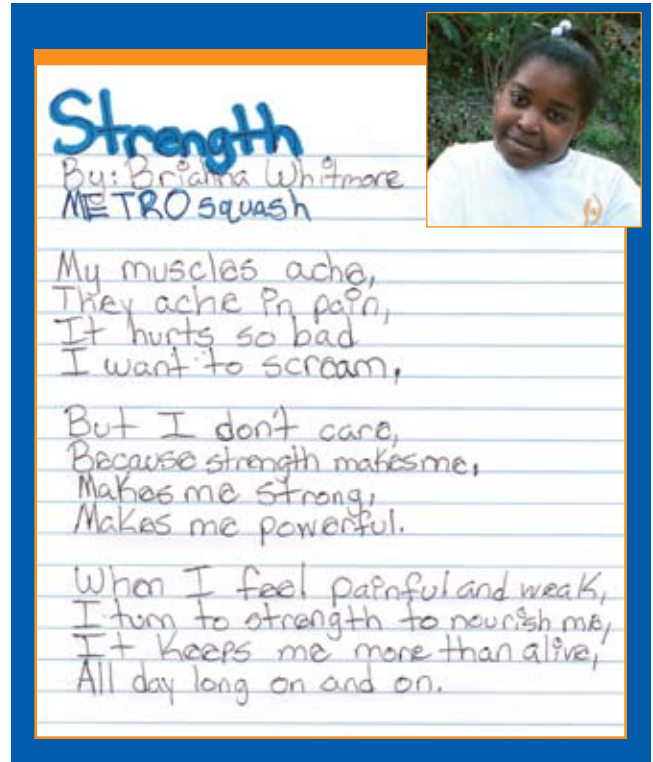 Strength
By: Brianna Whitmore
METROsquash
My muscles ache,
They ache in pain,
It hurts so bad
I want to scream,
But I don't care,
Because strength makes me,
Makes me strong,
Makes me powerful.
When I feel painful and weak,
I turn to strength to nourish me,
It keeps me more than alive,
All day long on and on.